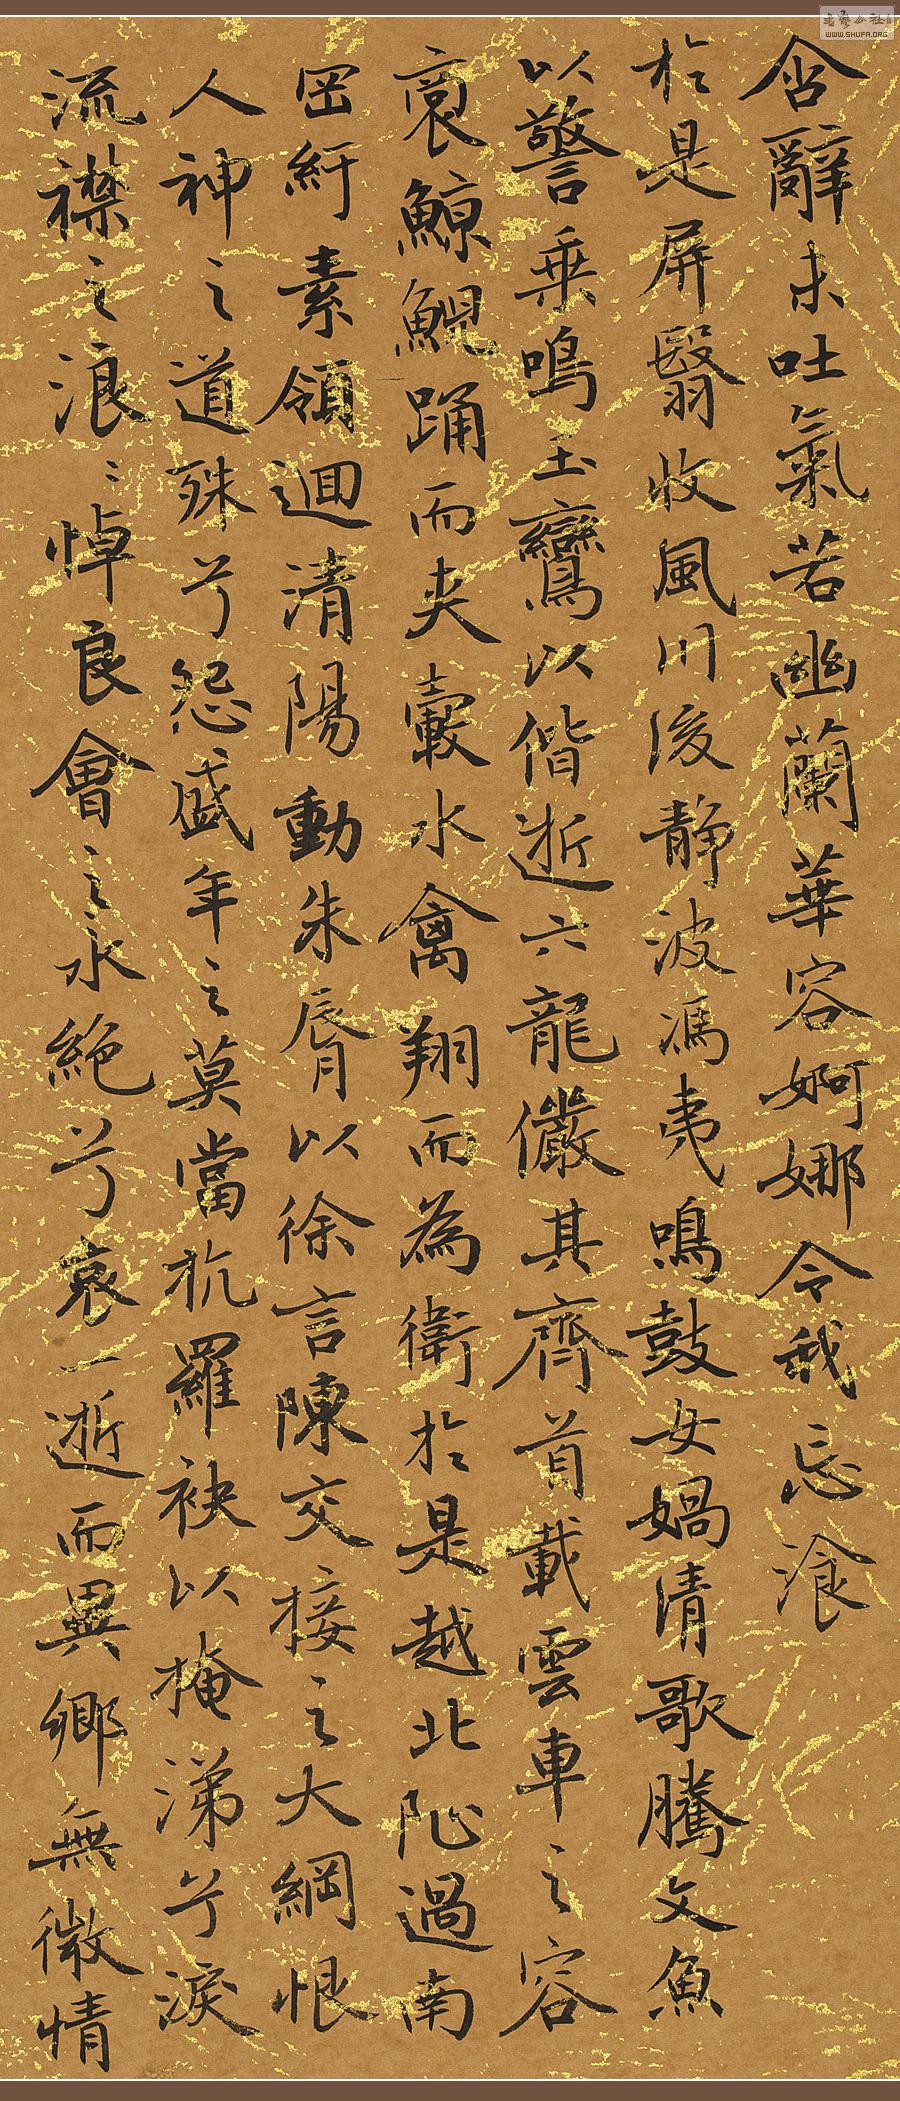 含辭未吐氣若幽蘭華容婀娜令我忘飡
於是屏翳收風川后靜波馮夷鳴鼓女媧清歌騰文魚
以警乘鳴玉鸞以偕逝六龍儼其齊首載雲車之容
裔鯨鯢踊而夾轂水禽翔而為衛於是越北沚過南
岡紆素領迴清陽動朱脣以徐言陳交接之大綱恨
人神之道殊兮怨盛年之莫當抗羅袂以掩涕兮淚
流襟之浪浪悼良會之永絕兮哀一逝而異鄉無微情
WWW.SHUFA.ORG